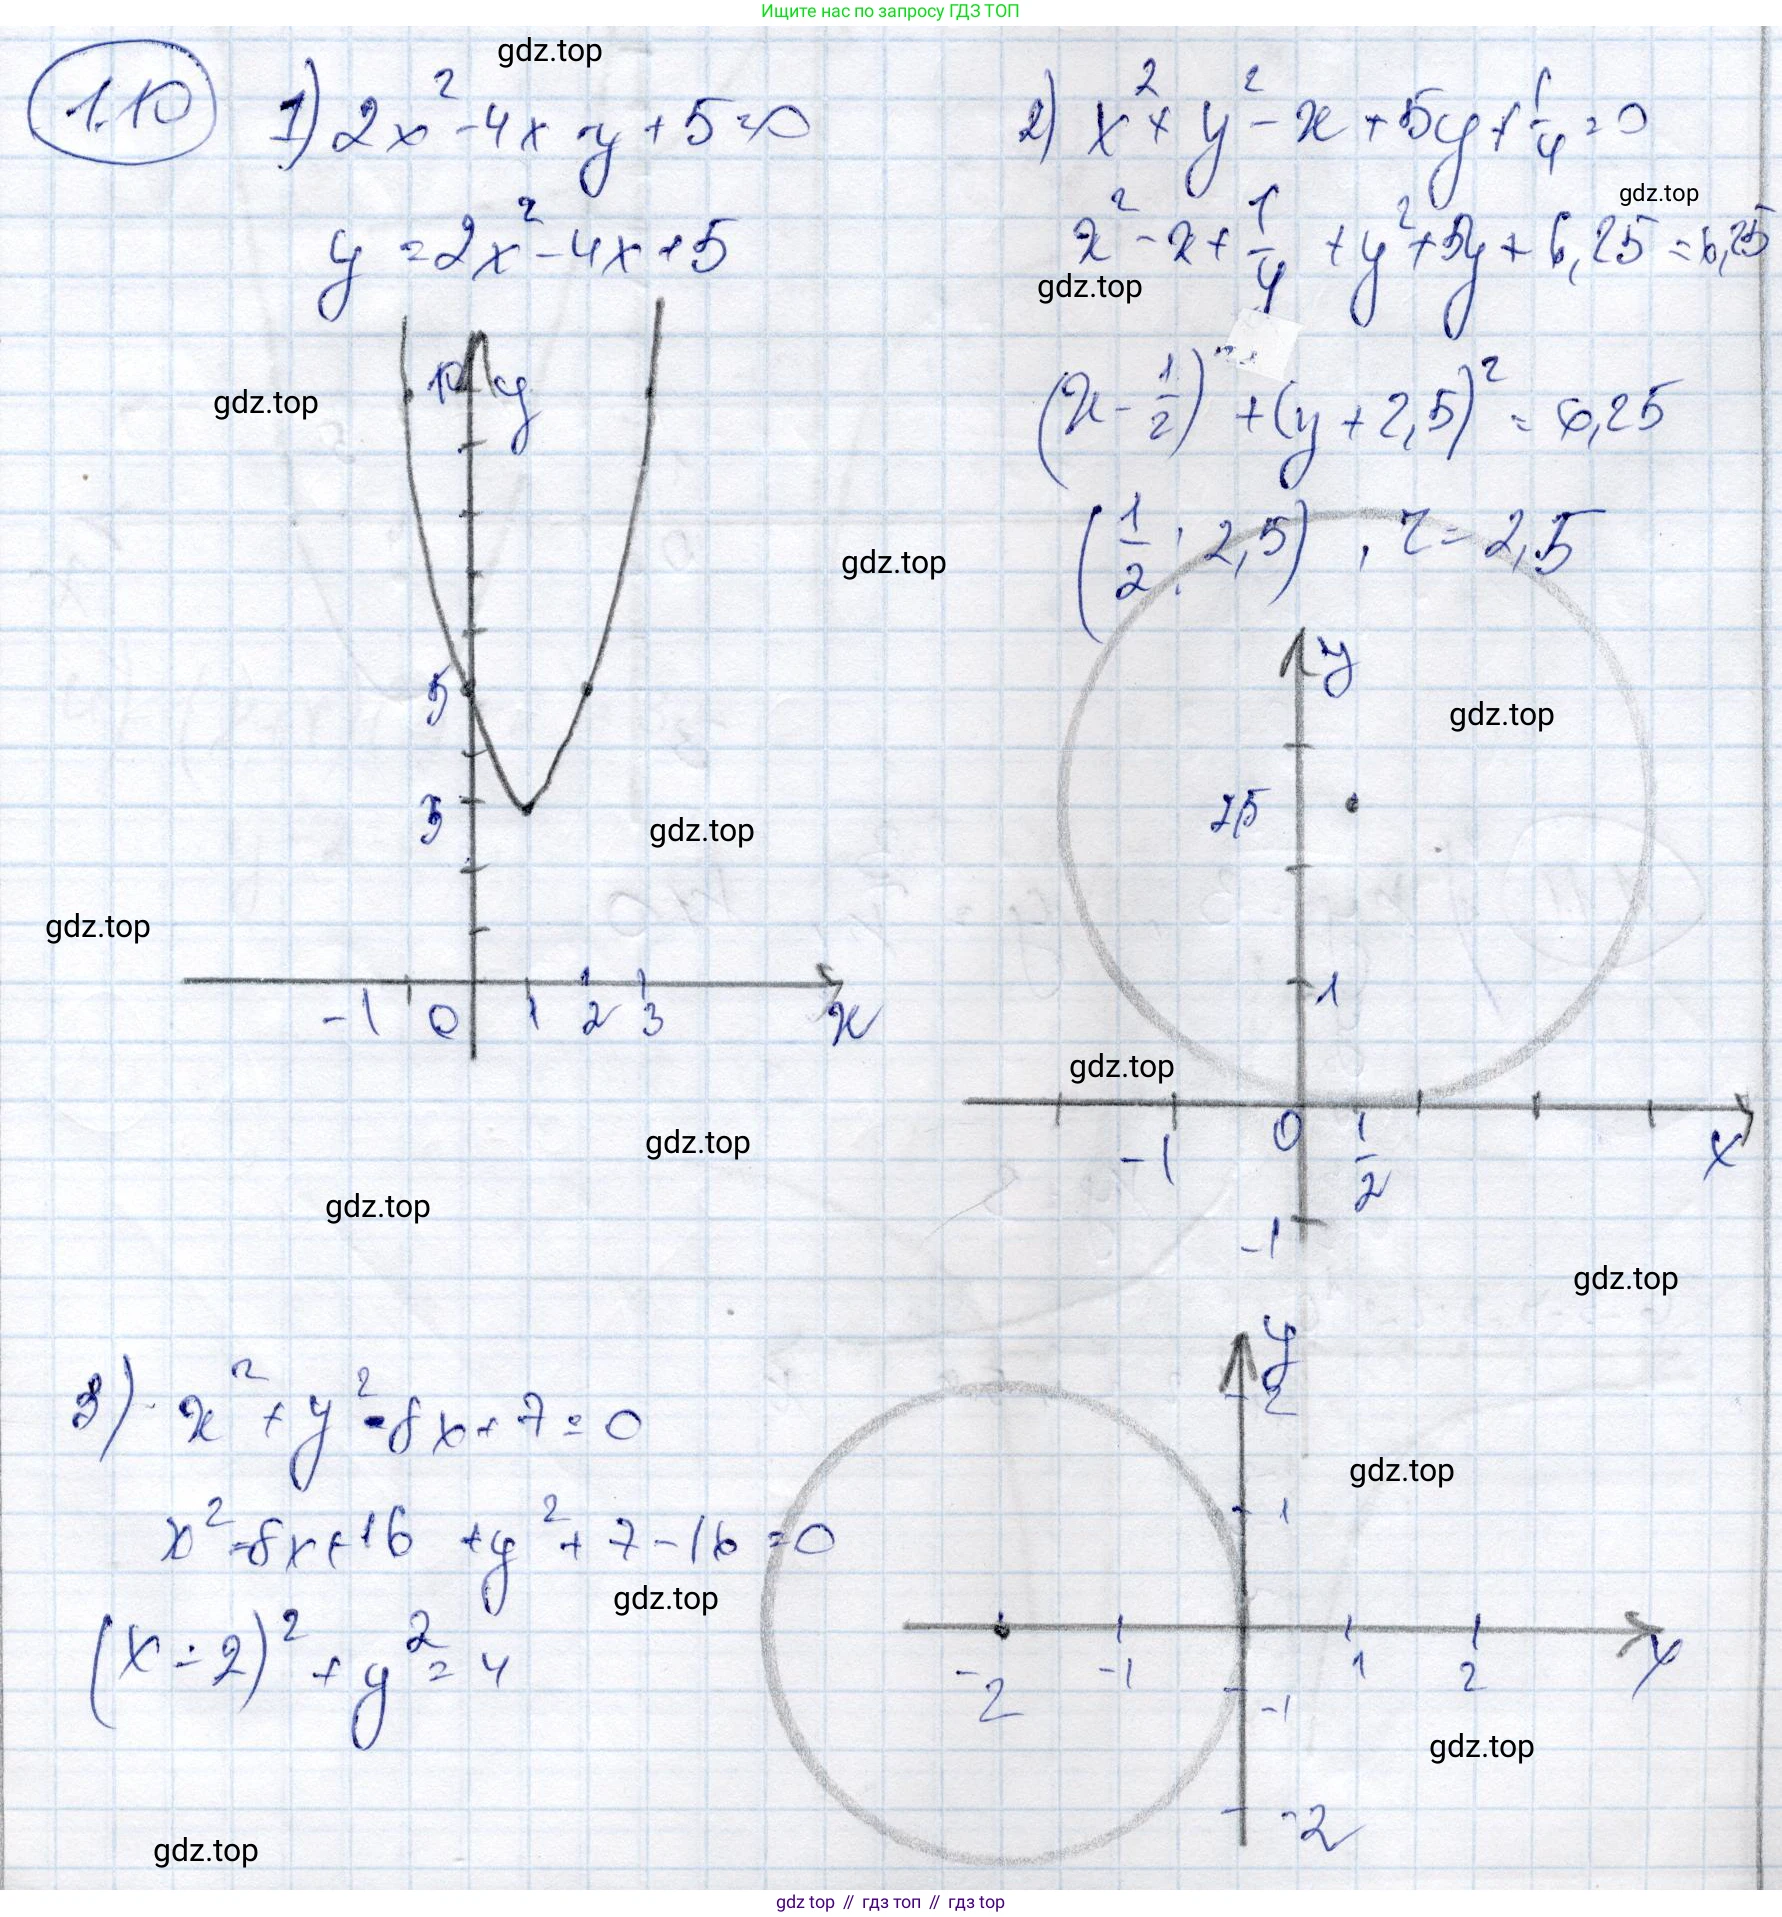 Ищите нас по запросу ГДЗ ТОП
gdz.top
1.10
1) 2x² - 4x - y + 5 = 0
y = 2x² - 4x + 5
10 y
gdz.top
5
3
gdz.top
gdz.top
gdz.top
-1 0 1 2 3 x
gdz.top
gdz.top
2) x² + y² - x + 5y + 1/4 = 0
gdz.top
x² - x + 1/4 + y² + 5y + 6,25 = 6,25
gdz.top
(x - 1/2)² + (y + 2,5)² = 6,25
(1/2; 2,5), r = 2,5
y
gdz.top
2,5
1
gdz.top
-1 0 1/2 x
-1
gdz.top
3) x² + y² - 8x + 7 = 0
x² - 8x + 16 + y² + 7 - 16 = 0
gdz.top
(x - 2)² + y² = 4
y
2
gdz.top
1
-2 -1 1 2 x
-1
gdz.top
-2
gdz.top
gdz top // гдз топ // гдз top